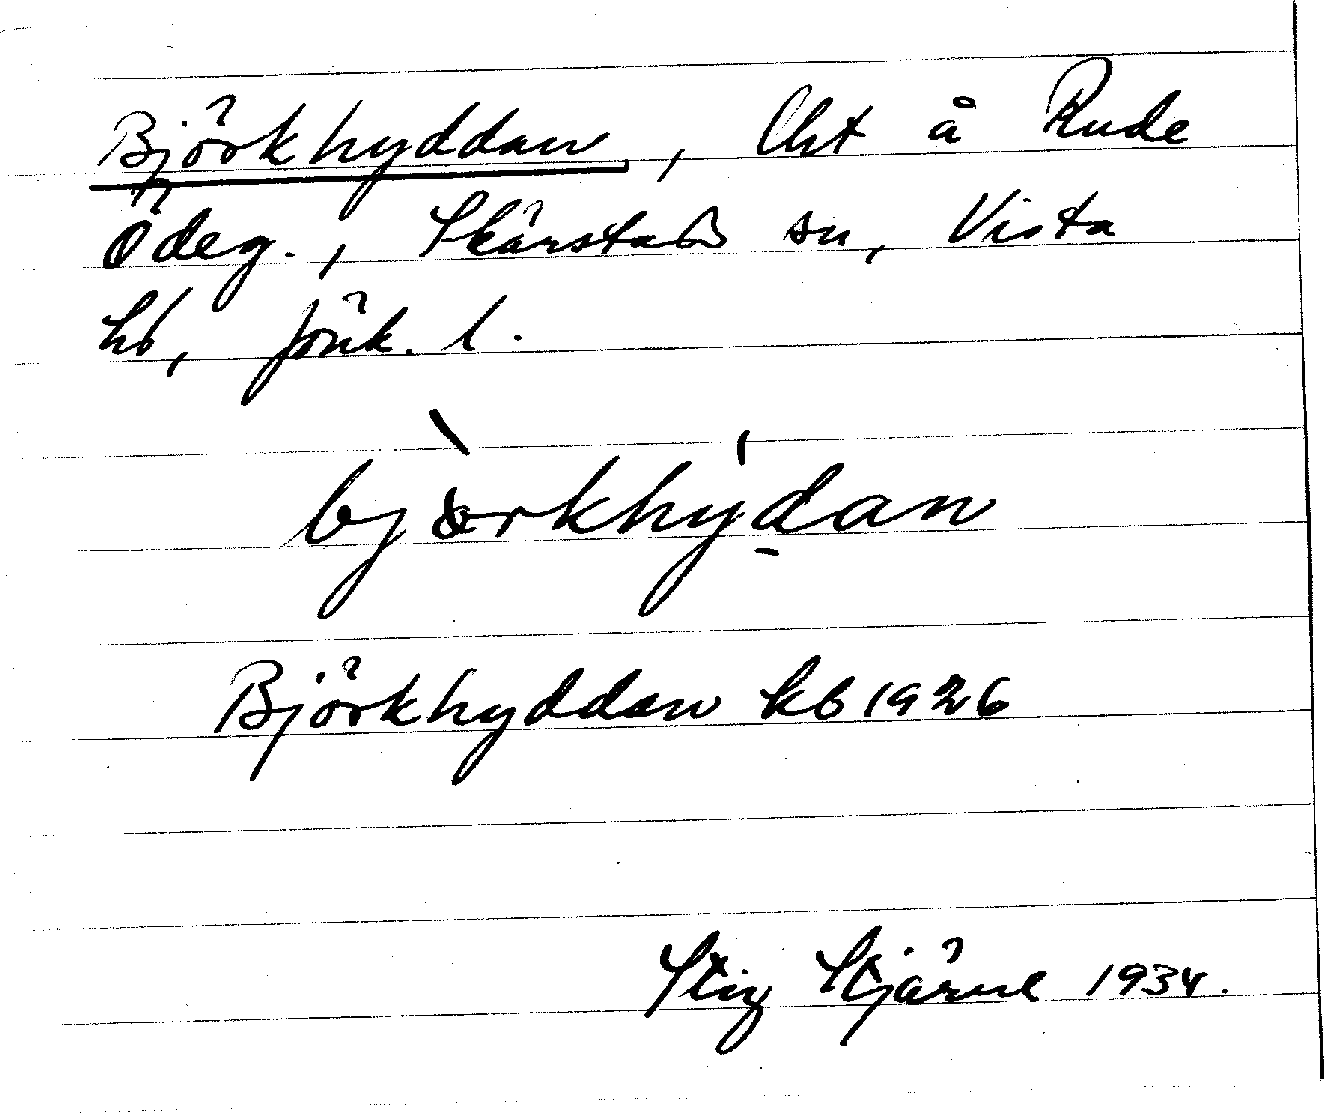 Björkhyddan, lht å Rude
Ödeg., Skärstads sn, Vista
hd, Jönk. l.
björkhydan
Björkhyddan kb 1926
Stig Stjärne 1934.